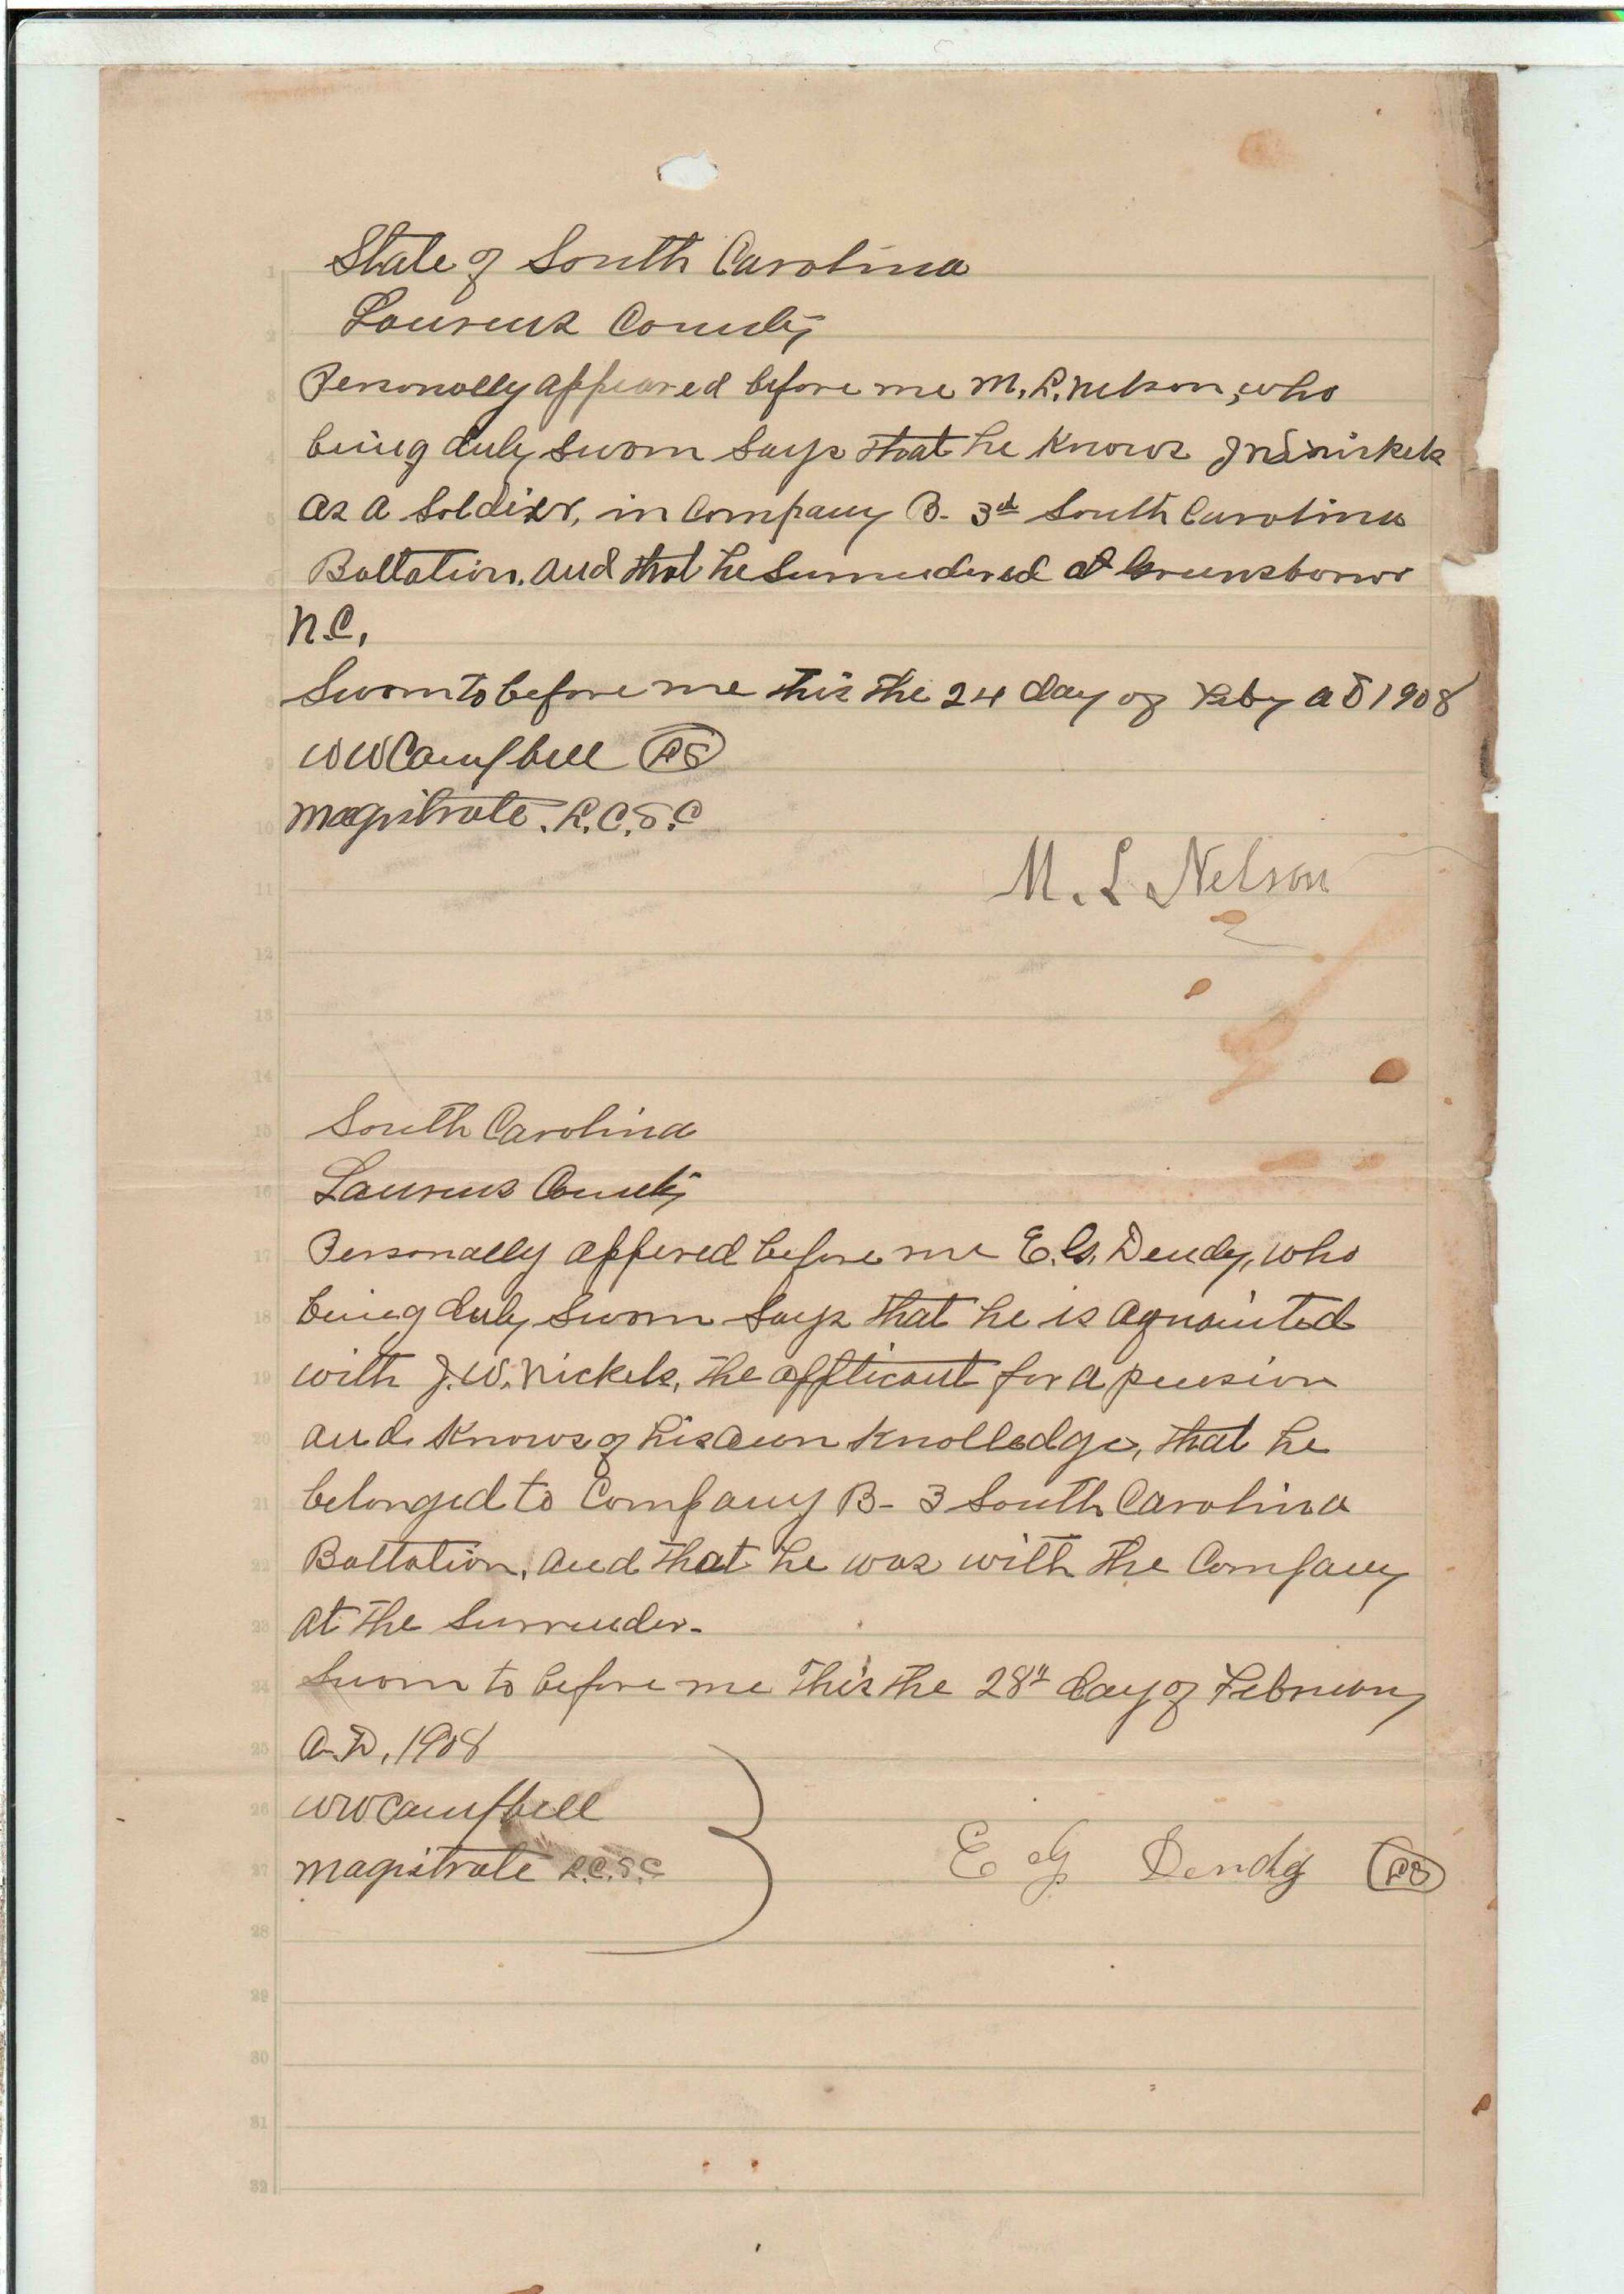 State of South Carolina
Laurens County
Personally appeared before me M. L. Nelson, who
being duly sworn says that he knows J W Nickels
as a soldier, in Company B. 3rd South Carolina
Battation. and that he surrendered at Greensboro
N.C.
Sworn to before me this the 24 day of Feby A D 1908
WW Campbell LS
Magistrate. L.C.S.C
M. L. Nelson
South Carolina
Laurens County
Personally appered before me E. G. Dendy, who
being duly sworn says that he is aqnainted
with J. W. Nickels, the applicant for a pension
and knows of his own knolledge, that he
belonged to Company B - 3 South Carolina
Battation, and that he was with the Company
at the surrender.
Sworn to before me this the 28th day of February
A.D. 1908
WW Campbell
Magistrate L.C.S.C
E G Dendy LS
1
2
3
4
5
6
7
8
9
10
11
12
13
14
15
16
17
18
19
20
21
22
23
24
25
26
27
28
29
30
31
32